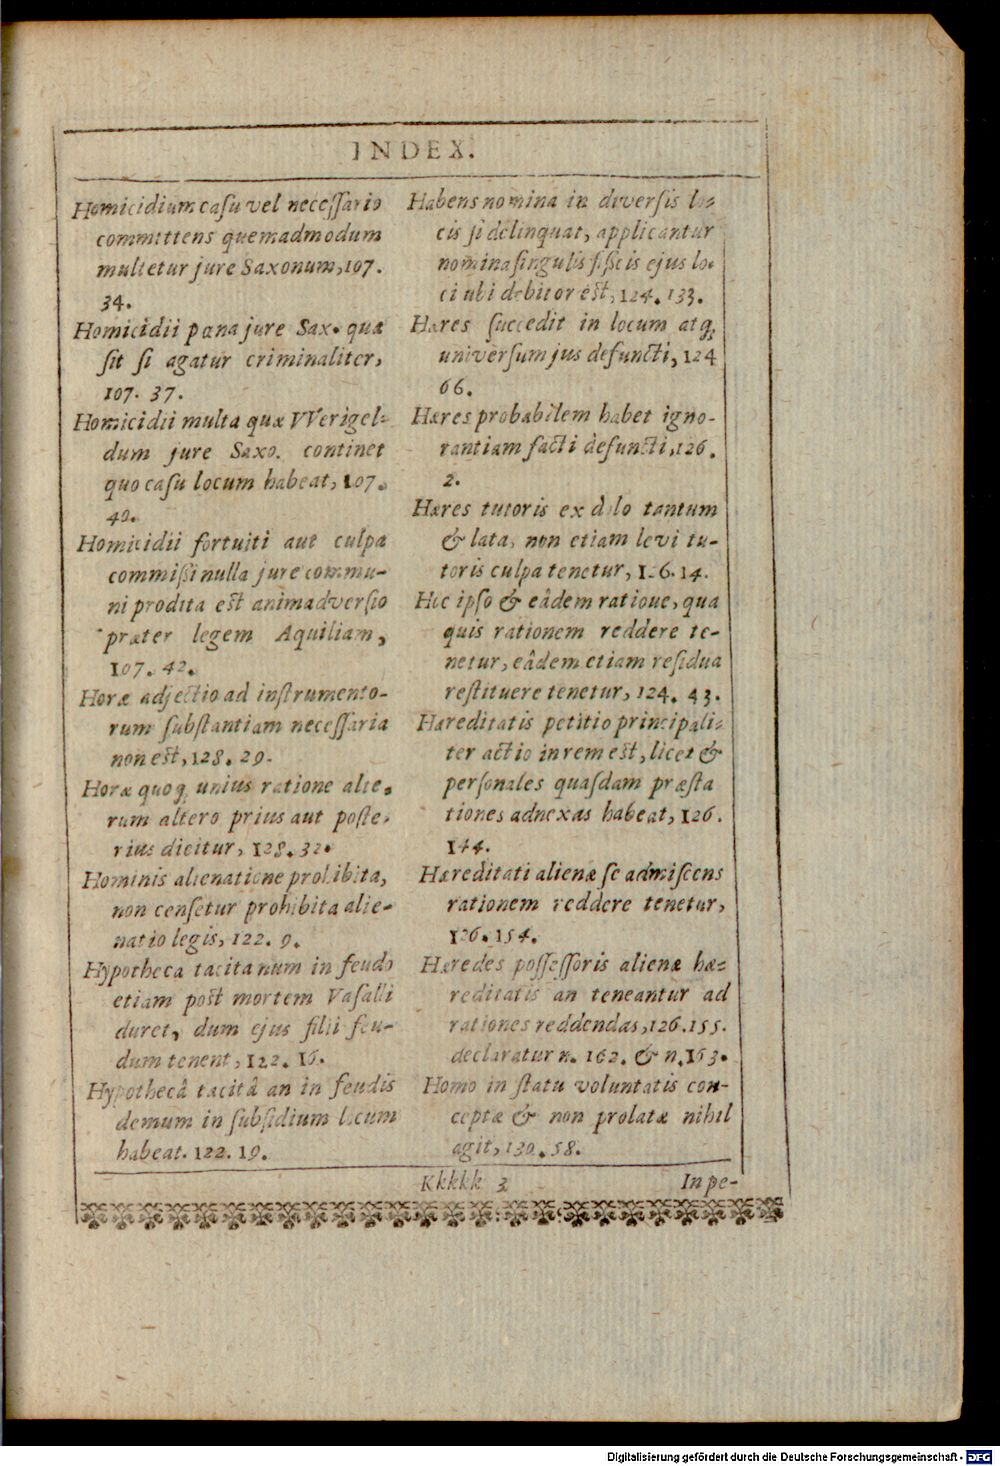 INDEX.
Homicidium caſu vel neceſſario
committens quemadmodum
multetur jure Saxonum, 107.
34.
Homicidii pœna jure Sax. quæ
ſit ſi agatur criminaliter,
107. 37.
Homicidii multa quæ VVerigel-
dum jure Saxo. continet
quo caſu locum habeat, 107.
40.
Homicidii fortuiti aut culpa
commiſſi nulla jure commu-
ni prodita eſt animadverſio
præter legem Aquiliam,
107. 42.
Horæ adjectio ad inſtrumento-
rum ſubſtantiam neceſſaria
non eſt, 128. 29.
Horæ quoq; unius ratione alte-
rum altero prius aut poſte-
rius dicitur, 128. 32.
Hominis alienatione prohibita,
non cenſetur prohibita alie-
natio legis, 122. 9.
Hypotheca tacita num in feudo
etiam poſt mortem Vaſalli
duret, dum ejus filii feu-
dum tenent, 122. 16.
Hypothecâ tacitâ an in feudis
demum in ſubſidium locum
habeat. 122. 19.
Habens nomina in diverſis lo-
cis ſi delinquat, applicantur
nomina ſingulis fiſcis ejus lo-
ci ubi debitor eſt, 124. 133.
Hæres ſuccedit in locum atq;
univerſum jus defuncti, 124
66.
Hæres probabilem habet igno-
rantiam facti defuncti, 126.
2.
Hæres tutoris ex dolo tantum
& lata, non etiam levi tu-
toris culpa tenetur, 126. 14.
Hoc ipſo & eâdem ratione, qua
quis rationem reddere te-
netur, eâdem etiam reſidua
reſtituere tenetur, 124. 43.
Hæreditatis petitio principali-
ter actio in rem eſt, licet &
perſonales quaſdam præſta
tiones adnexas habeat, 126.
144.
Hæreditati alienæ ſe admiſcens
rationem reddere tenetur,
126. 154.
Hæredes poſſeſſoris alienæ hæ-
reditatis an teneantur ad
rationes reddendas, 126. 155.
declaratur n. 162. & n. 163.
Homo in ſtatu voluntatis con-
ceptæ & non prolatæ nihil
agit, 130. 58.
Kkkkk 3
In pe-
Digitalisierung gefördert durch die Deutsche Forschungsgemeinschaft - DFG